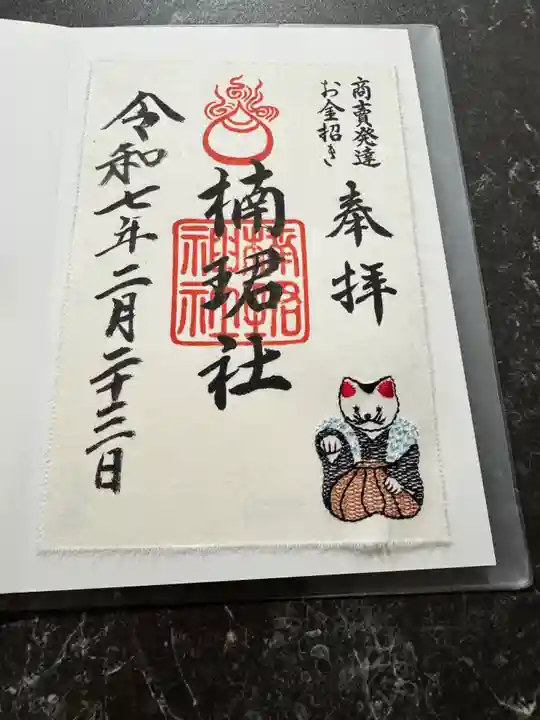 商賣発達
お金招き
奉拝
楠珺社
令和七年二月二十三日